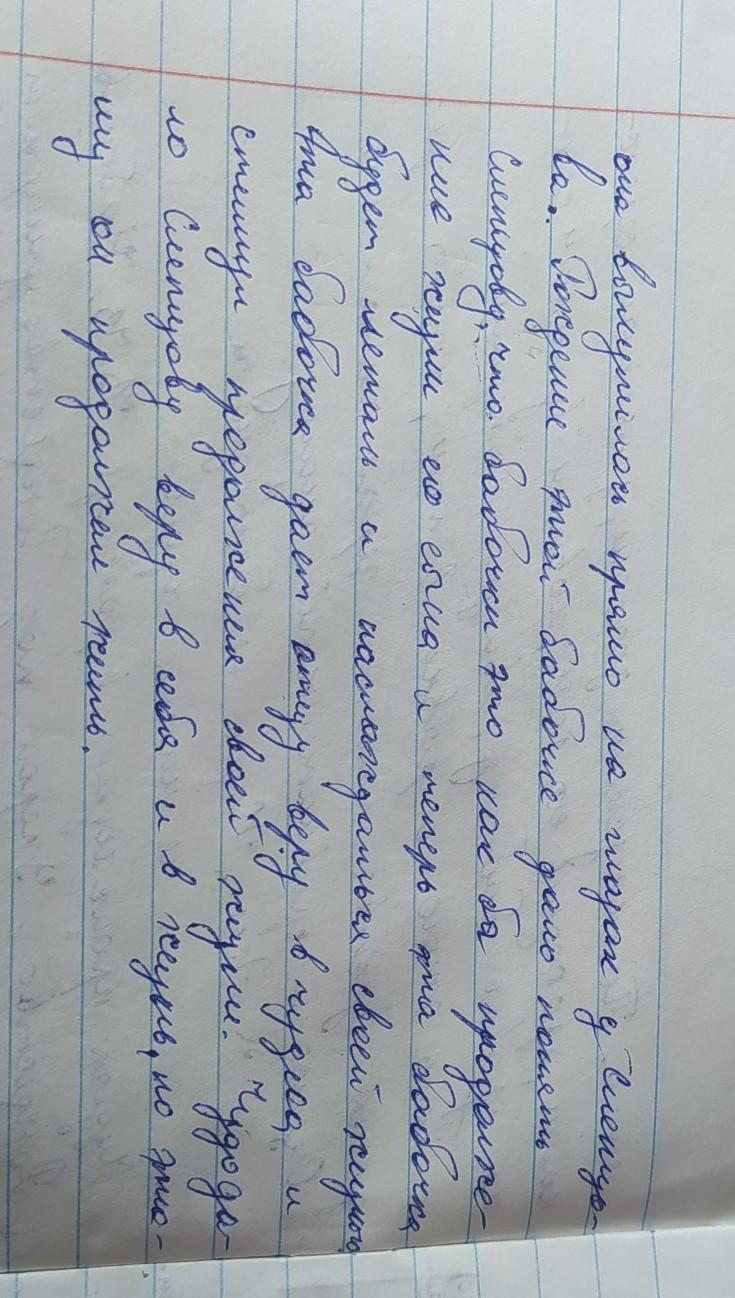 она вылупилась прямо на глазах у Слепцо-
ва. Рождение этой бабочке дало понять
Слепцову, что бабочки это как бы продолже-
ние жизни его сына и теперь эта бабочка
будет летать и наслаждаться своей жизнью
эта бабочка дает отцу веру в чудеса и
стимул предолжения своей жизни. Чудо да-
ло Слепцову веру в себя и в жизнь, по это-
му он продолжел жить.